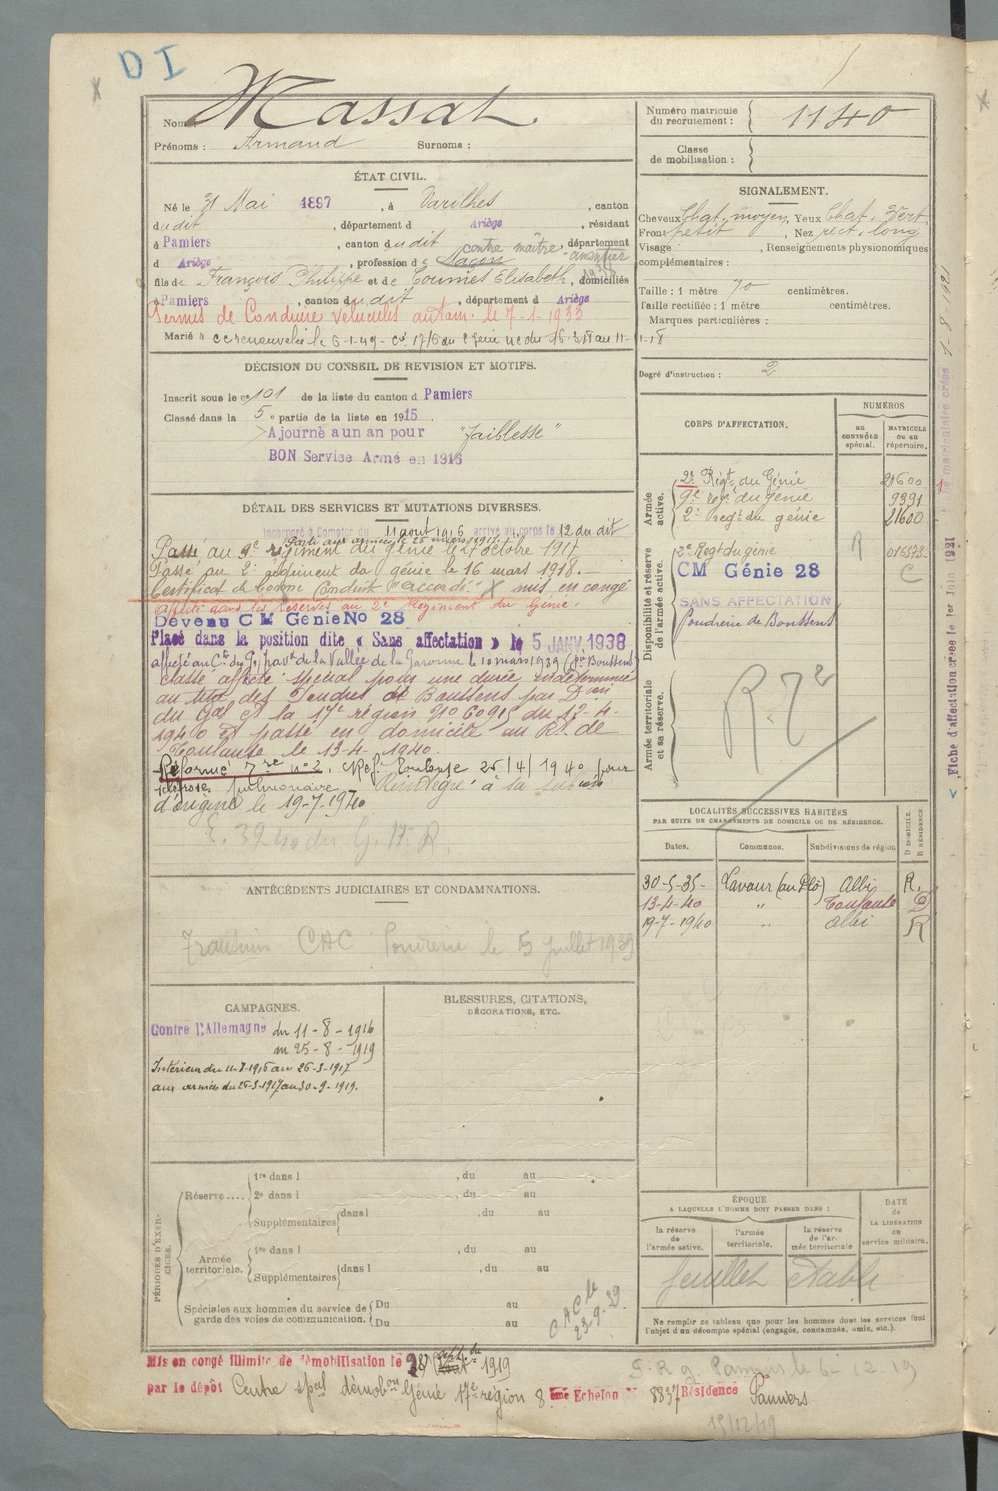 D I
Nom : Massat
Prénoms : Armand Surnoms :
Numéro matricule du recrutement : 1140
Classe de mobilisation :
ÉTAT CIVIL.
Né le 31 Mai 1897, à Varilhes, canton
dudit, département d Ariège, résident
à Pamiers, canton dudit, département
contre maître
d Ariège, profession de Maçon
1938
fils de François Philippe et de Coumes Elisabeth, domiciliés
à Pamiers, canton dudit, département d Ariège
Permis de Conduire véhicules autom. le 7-1-1933
Marié à
SIGNALEMENT.
Cheveux Chat. moyen, Yeux Chat. Vert.
Front petit, Nez rect. long
Visage , Renseignements physionomiques
complémentaires :
Taille : 1 mètre 70 centimètres.
Taille rectifiée : 1 mètre centimètres.
Marques particulières :
Degré d'instruction : 2
DÉCISION DU CONSEIL DE REVISION ET MOTIFS.
Inscrit sous le no 101 de la liste du canton d Pamiers
Classé dans la 5e partie de la liste en 1915
Ajourné a un an pour "faiblesse"
BON Service Armé en 1916
CORPS D'AFFECTATION.
NUMÉROS
au CONTRÔLE spécial.
MATRICULE ou au répertoire.
Armée active.
2e Régt. du Génie 21600
9e reg. du génie 9391
2e Regt du génie 21600
Disponibilité et réserve de l'armée active.
2e Regt du génie R
CM Génie 28 C
SANS AFFECTATION
Poudrerie de Boussens
Armée territoriale et sa réserve.
R. 72
DÉTAIL DES SERVICES ET MUTATIONS DIVERSES.
Incorporé à Compter du 11 août 1916 arrivé au corps le 12 du dit
Parti aux armées le 26 mars 1917.
Passé au 9e régiment du génie le 27 octobre 1917
Passé au 2e régiment du génie le 16 mars 1918.
Certificat de bonne Conduite "accordé" X mis en congé
affecté dans les réserves au 2e Régiment du Génie.
Devenu C M Génie No 28
Placé dans la position dite « Sans affectation » le 5 JANV. 1938
classé affecté spécial pour une durée indéterminée
au titre des Poudres de Boussens par Don
du Gal Ct la 17e région
1940 Et passé en domicile au Rt. de
Toulouse le 13-4-1940.
Réformé Tre no 2. CRéf. Toulouse 26/4/1940 pour
pulmonaire. Réintégré à la subdivon
d'origine le 19-7-1940
LOCALITÉS SUCCESSIVES HABITÉES
PAR SUITE DE CHANGEMENTS DE DOMICILE OU DE RÉSIDENCE.
Dates. Communes. Subdivisions de région D DOMICILE. R RÉSIDENCE
30-5-35- Lavaur (au Plô) Albi R.
13-4-40 " Toulouse D
19-7-1940 " Albi R
ANTÉCÉDENTS JUDICIAIRES ET CONDAMNATIONS.
CAC Poudrerie le 5 juillet 1939
CAMPAGNES.
Contre l'Allemagne du 11-8-1916
au 25-8-1919
Intérieur du 11-8-1916 au 25-3-1917
aux armées du 26-3-1917 au 30-9-1919.
BLESSURES, CITATIONS,
DÉCORATIONS, ETC.
PÉRIODES D'EXERCICES.
Réserve....
1re dans l , du au
2e dans l , du au
Supplémentaires dans l , du au
Armée territoriale.
1re dans l , du au
Supplémentaires dans l , du au
Spéciales aux hommes du service de garde des voies de communication.
Du au
Du au
CAC le
23.9.39
ÉPOQUE
A LAQUELLE L'HOMME DOIT PASSER DANS :
la réserve de l'armée active.
l'armée territoriale.
la réserve de l'armée territoriale
DATE de LA LIBÉRATION du service militaire.
feuillet établi
Ne remplir ce tableau que pour les hommes dont les services font
l'objet d'un décompte spécial (engagés, condamnés, omis, etc.).
Mis en congé illimité de démobilisation le 28 1919
par le dépôt Centre spal démobon Génie 17e région 8 ème Echelon No 8837 Résidence Pamiers
Pamiers le 6-12-19
15/12/19
Fiche d'affectation créée le 1er Juin 1921